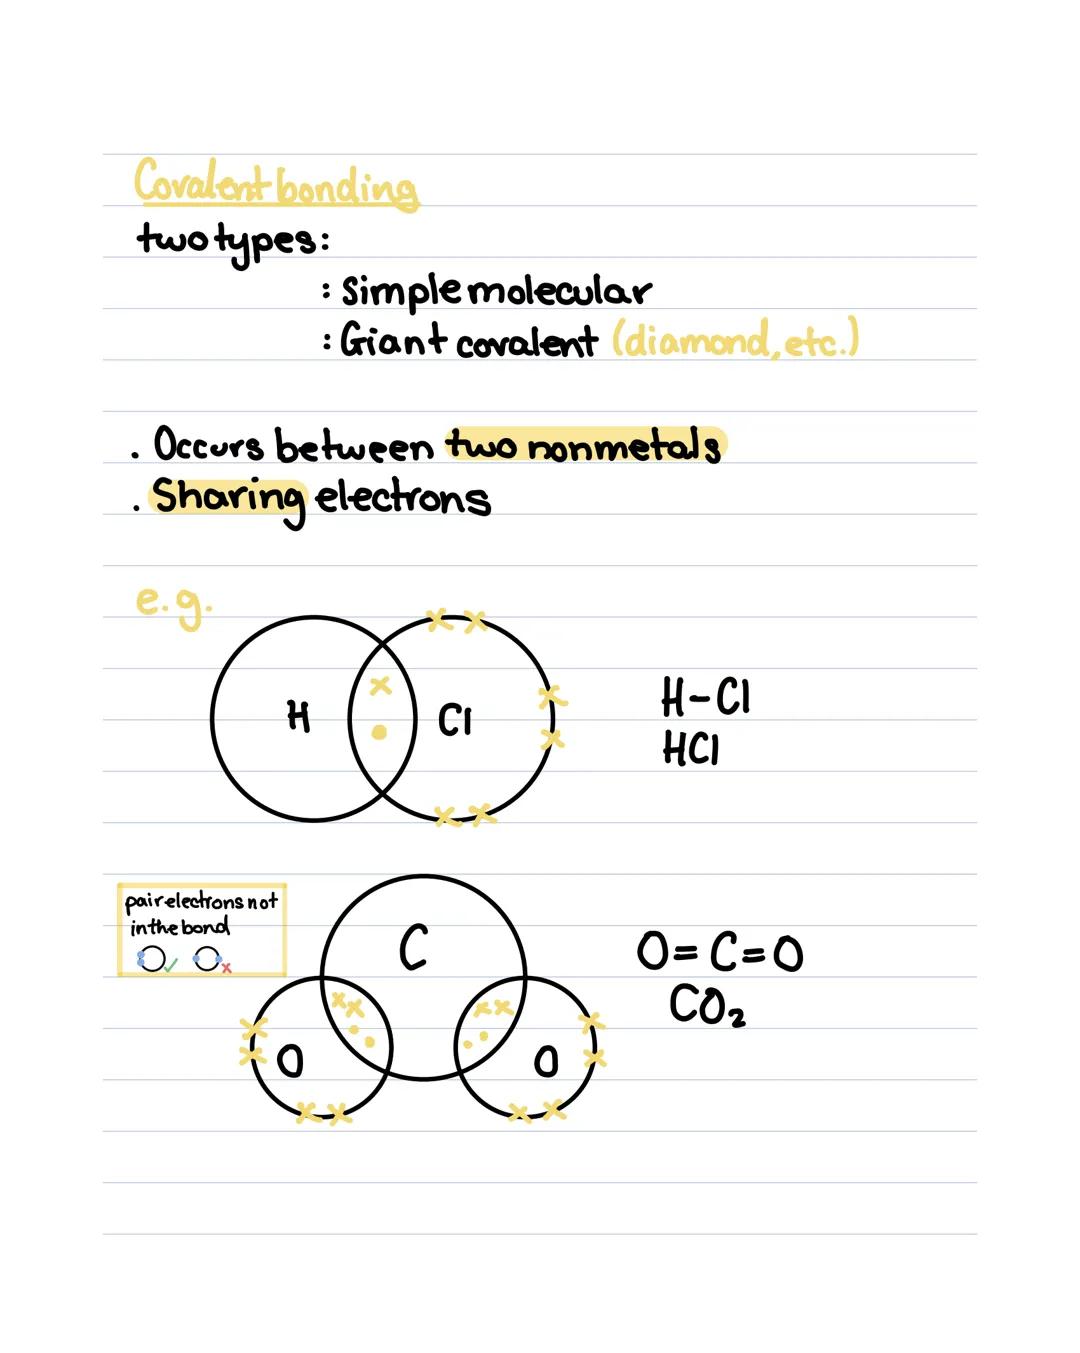 Covalent bonding
two types:
: Simple molecular
: Giant covalent (diamond, etc.)
. Occurs between two nonmetals
. Sharing electrons
e.g.
H Cl
H-Cl
HCl
pair electrons not
in the bond
C
O O
O=C=O
CO₂